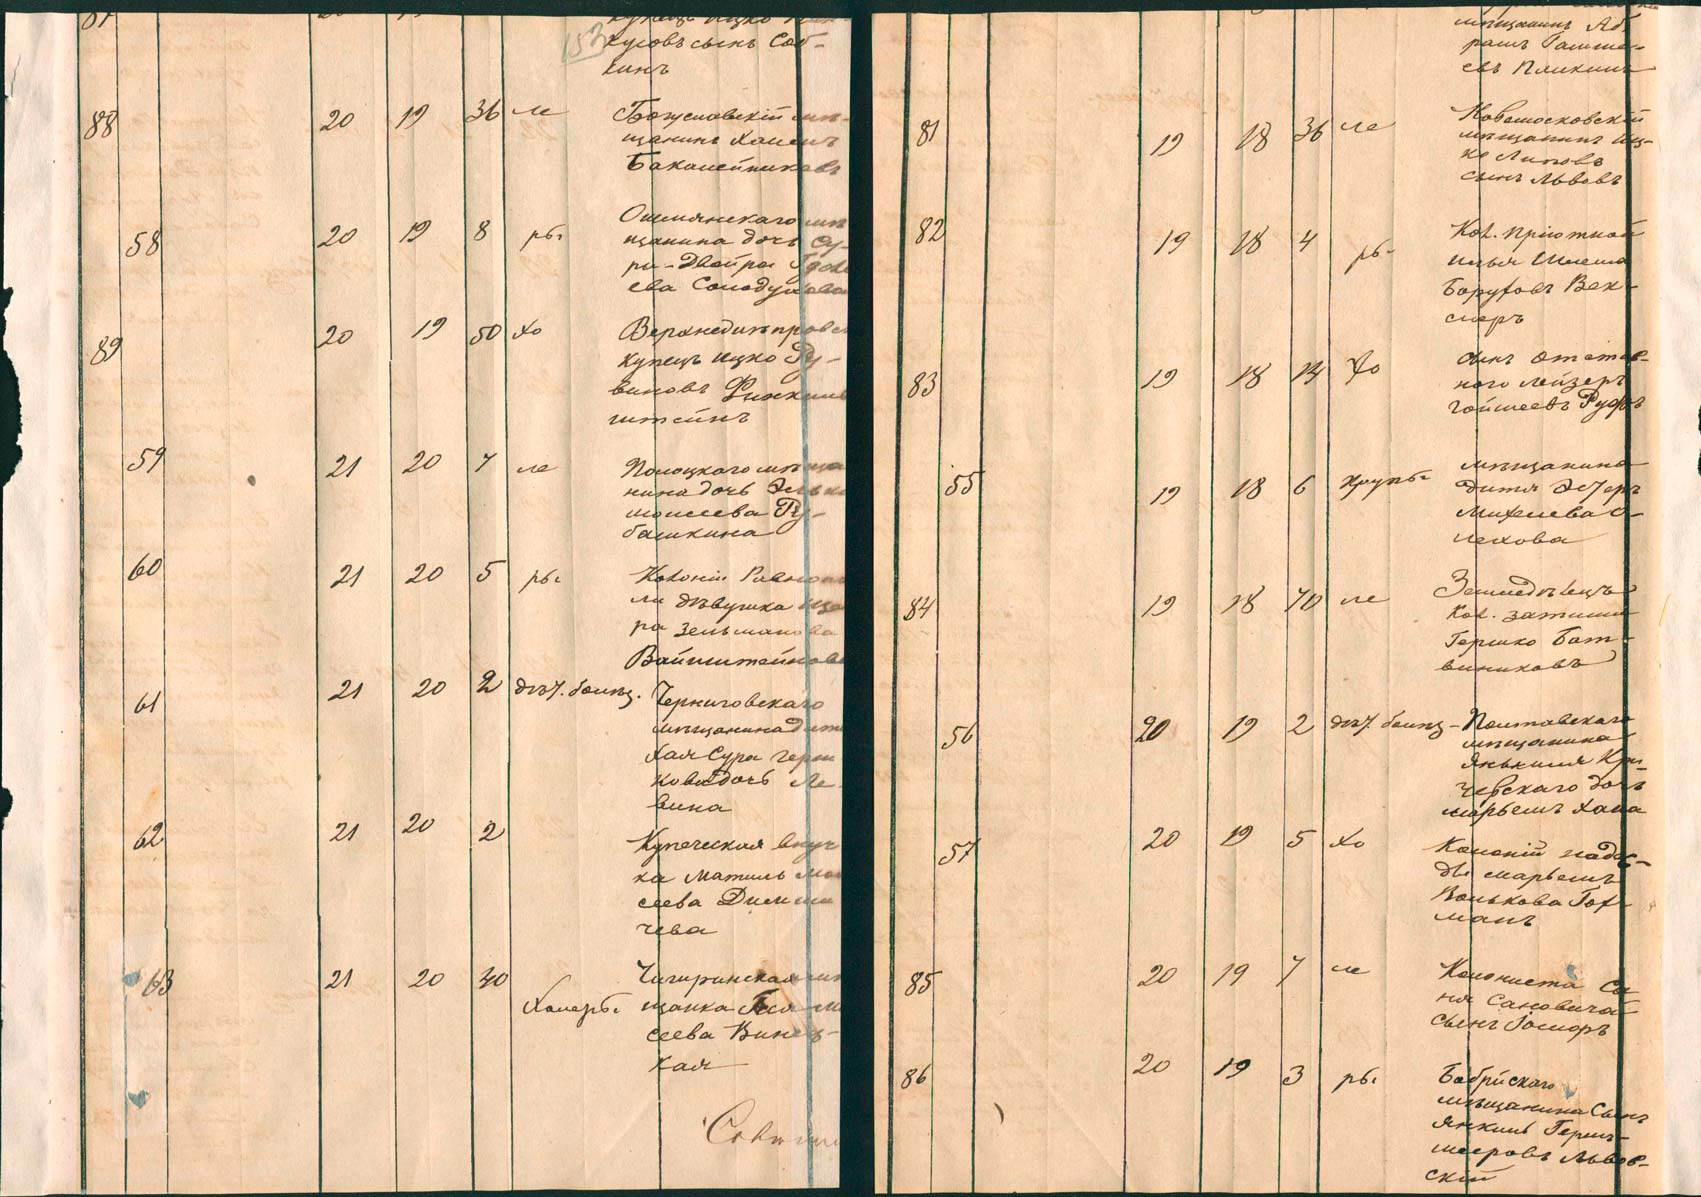 87
153
кусовъ сынъ Соб-
кинъ
88 20 19 36 ле Богуславскій мѣ-
щанинъ Хаимъ
Бакалейниковъ
58 20 19 8 рь. Ошмянскаго мѣ
щанина дочь Су-
ра-Двойра
ева Солодухова
89 20 19 50 хо Верхнеднѣпровск
купецъ Ицко Ру-
виновъ Финкель
штейнъ
59 21 20 7 ле Полоцкаго мѣща
нина дочь Элька
Моисеева Ру-
башкина
60 21 20 5 рь. Колоніи Равнопо
ля дѣвушка
ра Зельманова
Вайнштейнова
61 21 20 2 дѣт. болѣз. Черниговскаго
мѣщанина дитя
Хая Сура Герш
кова дочь Ле-
вина
62 21 20 2 Купеческая внуч
ка Матиль Мои
сеева Дименш
чева
63 21 20 40 Холеръ. Чигиринская мѣ
щанка Бся М
сеева Винец-
кая
мѣщанинъ Аб
рамъ
евъ Пликинъ
81 19 18 36 ле Новомосковскій
мѣщанинъ Иц-
ко Липовъ
сынъ Львовъ
82 19 18 4 рь. Кол. Пріютной
Илья Шлема
Боруховъ Век-
слеръ
83 19 18 14 хо сынъ отстав-
ного Лейзеръ
Гойшеевъ Руфъ
55 19 18 6 Крупъ. мѣщанина
дитя Эстеръ
Михелева О-
лехова
84 19 18 70 ле Земледѣлецъ
Кол. Затишье
Гершко Бот-
виниковъ
56 20 19 2 дѣт. болѣз- Полтавскаго
мѣщанина
Янькеля Кри-
чевскаго дочь
Марьемъ Хана
57 20 19 5 хо Колоній Надеж-
ды Марьемъ
Волькова Гоф-
манъ
85 20 19 7 ле Колониста Са-
ня Сановича
сынъ
86 20 19 3 рь. Бобрискаго
мѣщанина сынъ
Янкель Герш-
мееровъ Львов-
скій